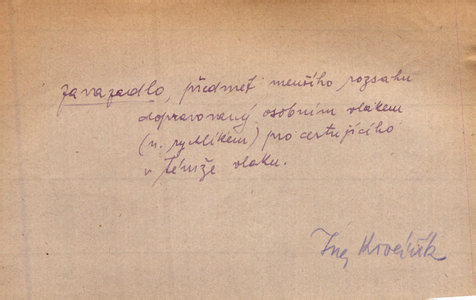 zavazadlo, předmět menšího rozsahu
dopravovaný osobním vlakem
(n. rychlíkem) pro cestujícího
v témže vlaku.
Ing